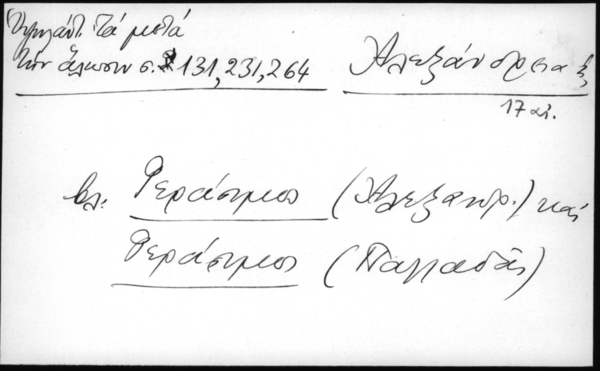 Ὑψηλάντ. Τά μετά
τήν ἅλωσιν σ. 131, 231, 264
Ἀλεξάνδρεια
17 αἰ.
βλ. Γεράσιμος (Ἀλεξανδρ.) καί
Γεράσιμος (Παλλαδᾶς)